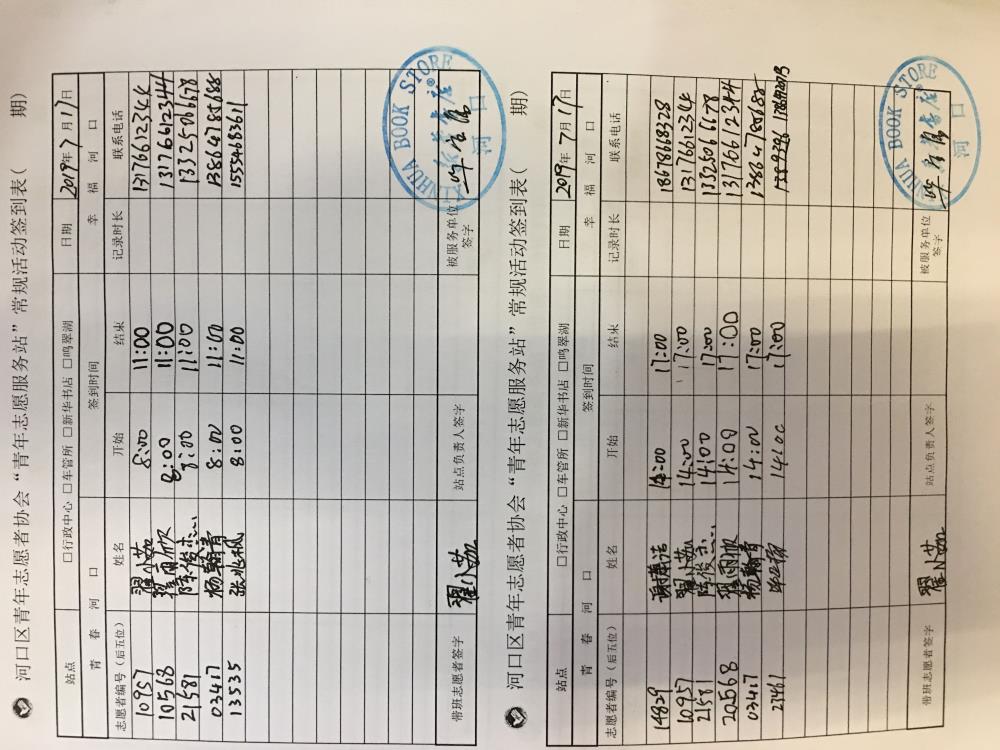 河口区青年志愿者协会“青年志愿服务站”常规活动签到表( 期)
站点 □行政中心 □车管所 □新华书店 □鸣翠湖 日期 2019年7月17日
青春河口 幸福河口
签到时间
志愿者编号(后五位) 姓名 开始 结束 记录时长 联系电话
10957 翟小茹 8:00 11:00 13176612344
10568 翟雨欣 8:00 11:00 13176612344
21581 陈俊杰 8:00 11:00 13325066678
03417 杨翰青 8:00 11:00 13864785688
13535 张兆枫 8:00 11:00 15554683611
带班志愿者签字 翟小茹 站点负责人签字 被服务单位签字
XINHUA BOOK STORE
新华书店
河口
河口区青年志愿者协会“青年志愿服务站”常规活动签到表( 期)
站点 □行政中心 □车管所 □新华书店 □鸣翠湖 日期 2019年7月17日
青春河口 幸福河口
签到时间
志愿者编号(后五位) 姓名 开始 结束 记录时长 联系电话
14829 14:00 17:00 18678668328
10957 翟小茹 14:00 17:00 13176612344
21581 陈俊杰 14:00 17:00 13325066678
20568 翟雨欣 14:00 17:00 13176612344
03417 杨翰青 14:00 17:00 13864785688
27461 14:00 17:00
带班志愿者签字 翟小茹 站点负责人签字 被服务单位签字
XINHUA BOOK STORE
新华书店
河口